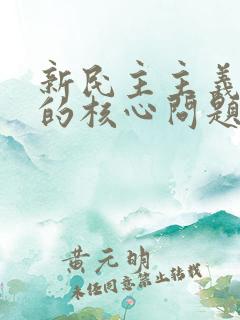 新民主主義
的核心問題
黄元明
未经同意禁止转载